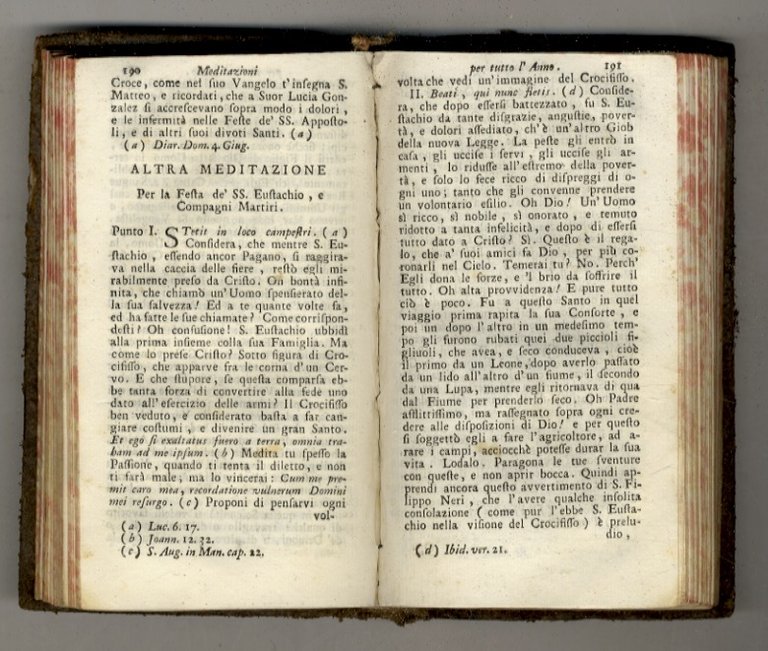 190 Meditazioni
Croce, come nel ſuo Vangelo t'inſegna S.
Matteo, e ricordati, che a Suor Lucia Gon-
zalez ſi accreſcevano ſopra modo i dolori,
e le infermità nelle Feſte de' SS. Appoſto-
li, e di altri ſuoi divoti Santi. (a)
(a) Diar. Dom. 4. Giug.
ALTRA MEDITAZIONE
Per la Feſta de' SS. Euſtachio, e
Compagni Martiri.
Punto I. STetit in loco campeſtri. (a)
Conſidera, che mentre S. Eu-
ſtachio, eſſendo ancor Pagano, ſi raggira-
va nella caccia delle fiere, reſtò egli mi-
rabilmente preſo da Criſto. Oh bontà infi-
nita, che chiamò un'Uomo ſpenſierato del-
la ſua ſalvezza! Ed a te quante volte fa,
ed ha fatte le ſue chiamate? Come corriſpon-
deſti? Oh confuſione! S. Euſtachio ubbidì
alla prima inſieme colla ſua Famiglia. Ma
come lo preſe Criſto? Sotto figura di Cro-
cifiſſo, che apparve fra le corna d'un Cer-
vo. E che ſtupore, ſe queſta comparſa eb-
be tanta forza di convertire alla fede uno
dato all'eſercizio delle armi? Il Crocifiſſo
ben veduto, e conſiderato baſta a far can-
giare coſtumi, e divenire un gran Santo.
Et ego ſi exaltatus fuero a terra, omnia tra-
ham ad me ipſum. (b) Medita tu ſpeſſo la
Paſſione, quando ti tenta il diletto, e non
ti farà male, ma lo vincerai: Cum me pre-
mit caro mea, recordatione vulnerum Domini
mei reſurgo. (c) Proponi di penſarvi ogni
vol-
(a) Luc. 6. 17.
(b) Joann. 12. 32.
(c) S. Aug. in Man. cap. 22.
per tutto l'Anno. 191
volta che vedi un'immagine del Crocifiſſo.
II. Beati, qui nunc fletis. (d) Conſide-
ra, che dopo eſſerſi battezzato, fu S. Eu-
ſtachio da tante diſgrazie, anguſtie, pover-
tà, e dolori aſſediato, ch'è un'altro Giob
della nuova Legge. La peſte gli entrò in
caſa, gli ucciſe i ſervi, gli ucciſe gli ar-
menti, lo riduſſe all'eſtremo della pover-
tà, e ſolo lo fece ricco di diſpreggi di o-
gni uno; tanto che gli convenne prendere
un volontario eſilio. Oh Dio! Un'Uomo
sì ricco, sì nobile, sì onorato, e temuto
ridotto a tanta infelicità, e dopo di eſſerſi
tutto dato a Criſto? Sì. Queſto è il rega-
lo, che a' ſuoi amici fa Dio, per più co-
ronarli nel Cielo. Temerai tu? No. Perch'
Egli dona le forze, e 'l brio da ſoffrire il
tutto. Oh alta provvidenza! E pure tutto
ciò è poco. Fu a queſto Santo in quel
viaggio prima rapita la ſua Conſorte, e
poi un dopo l'altro in un medeſimo tem-
po gli furono rubati quei due piccioli fi-
gliuoli, che avea, e ſeco conduceva, cioè
il primo da un Leone, dopo averlo paſſato
da un lido all'altro d'un fiume, il ſecondo
da una Lupa, mentre egli ritornava di qua
dal Fiume per prenderlo ſeco. Oh Padre
afflittiſſimo, ma raſſegnato ſopra ogni cre-
dere alle diſpoſizioni di Dio! e per queſto
ſi ſoggettò egli a fare l'agricoltore, ad a-
rare i campi, acciocchè poteſſe durar la ſua
vita. Lodalo. Paragona le tue ſventure
con queſte, e non aprir bocca. Quindi ap-
prendi ancora queſto avvertimento di S. Fi-
lippo Neri, che l'avere qualche inſolita
conſolazione (come pur l'ebbe S. Euſta-
chio nella viſione del Crocifiſſo) è prelu-
dio,
(d) Ibid. ver. 21.